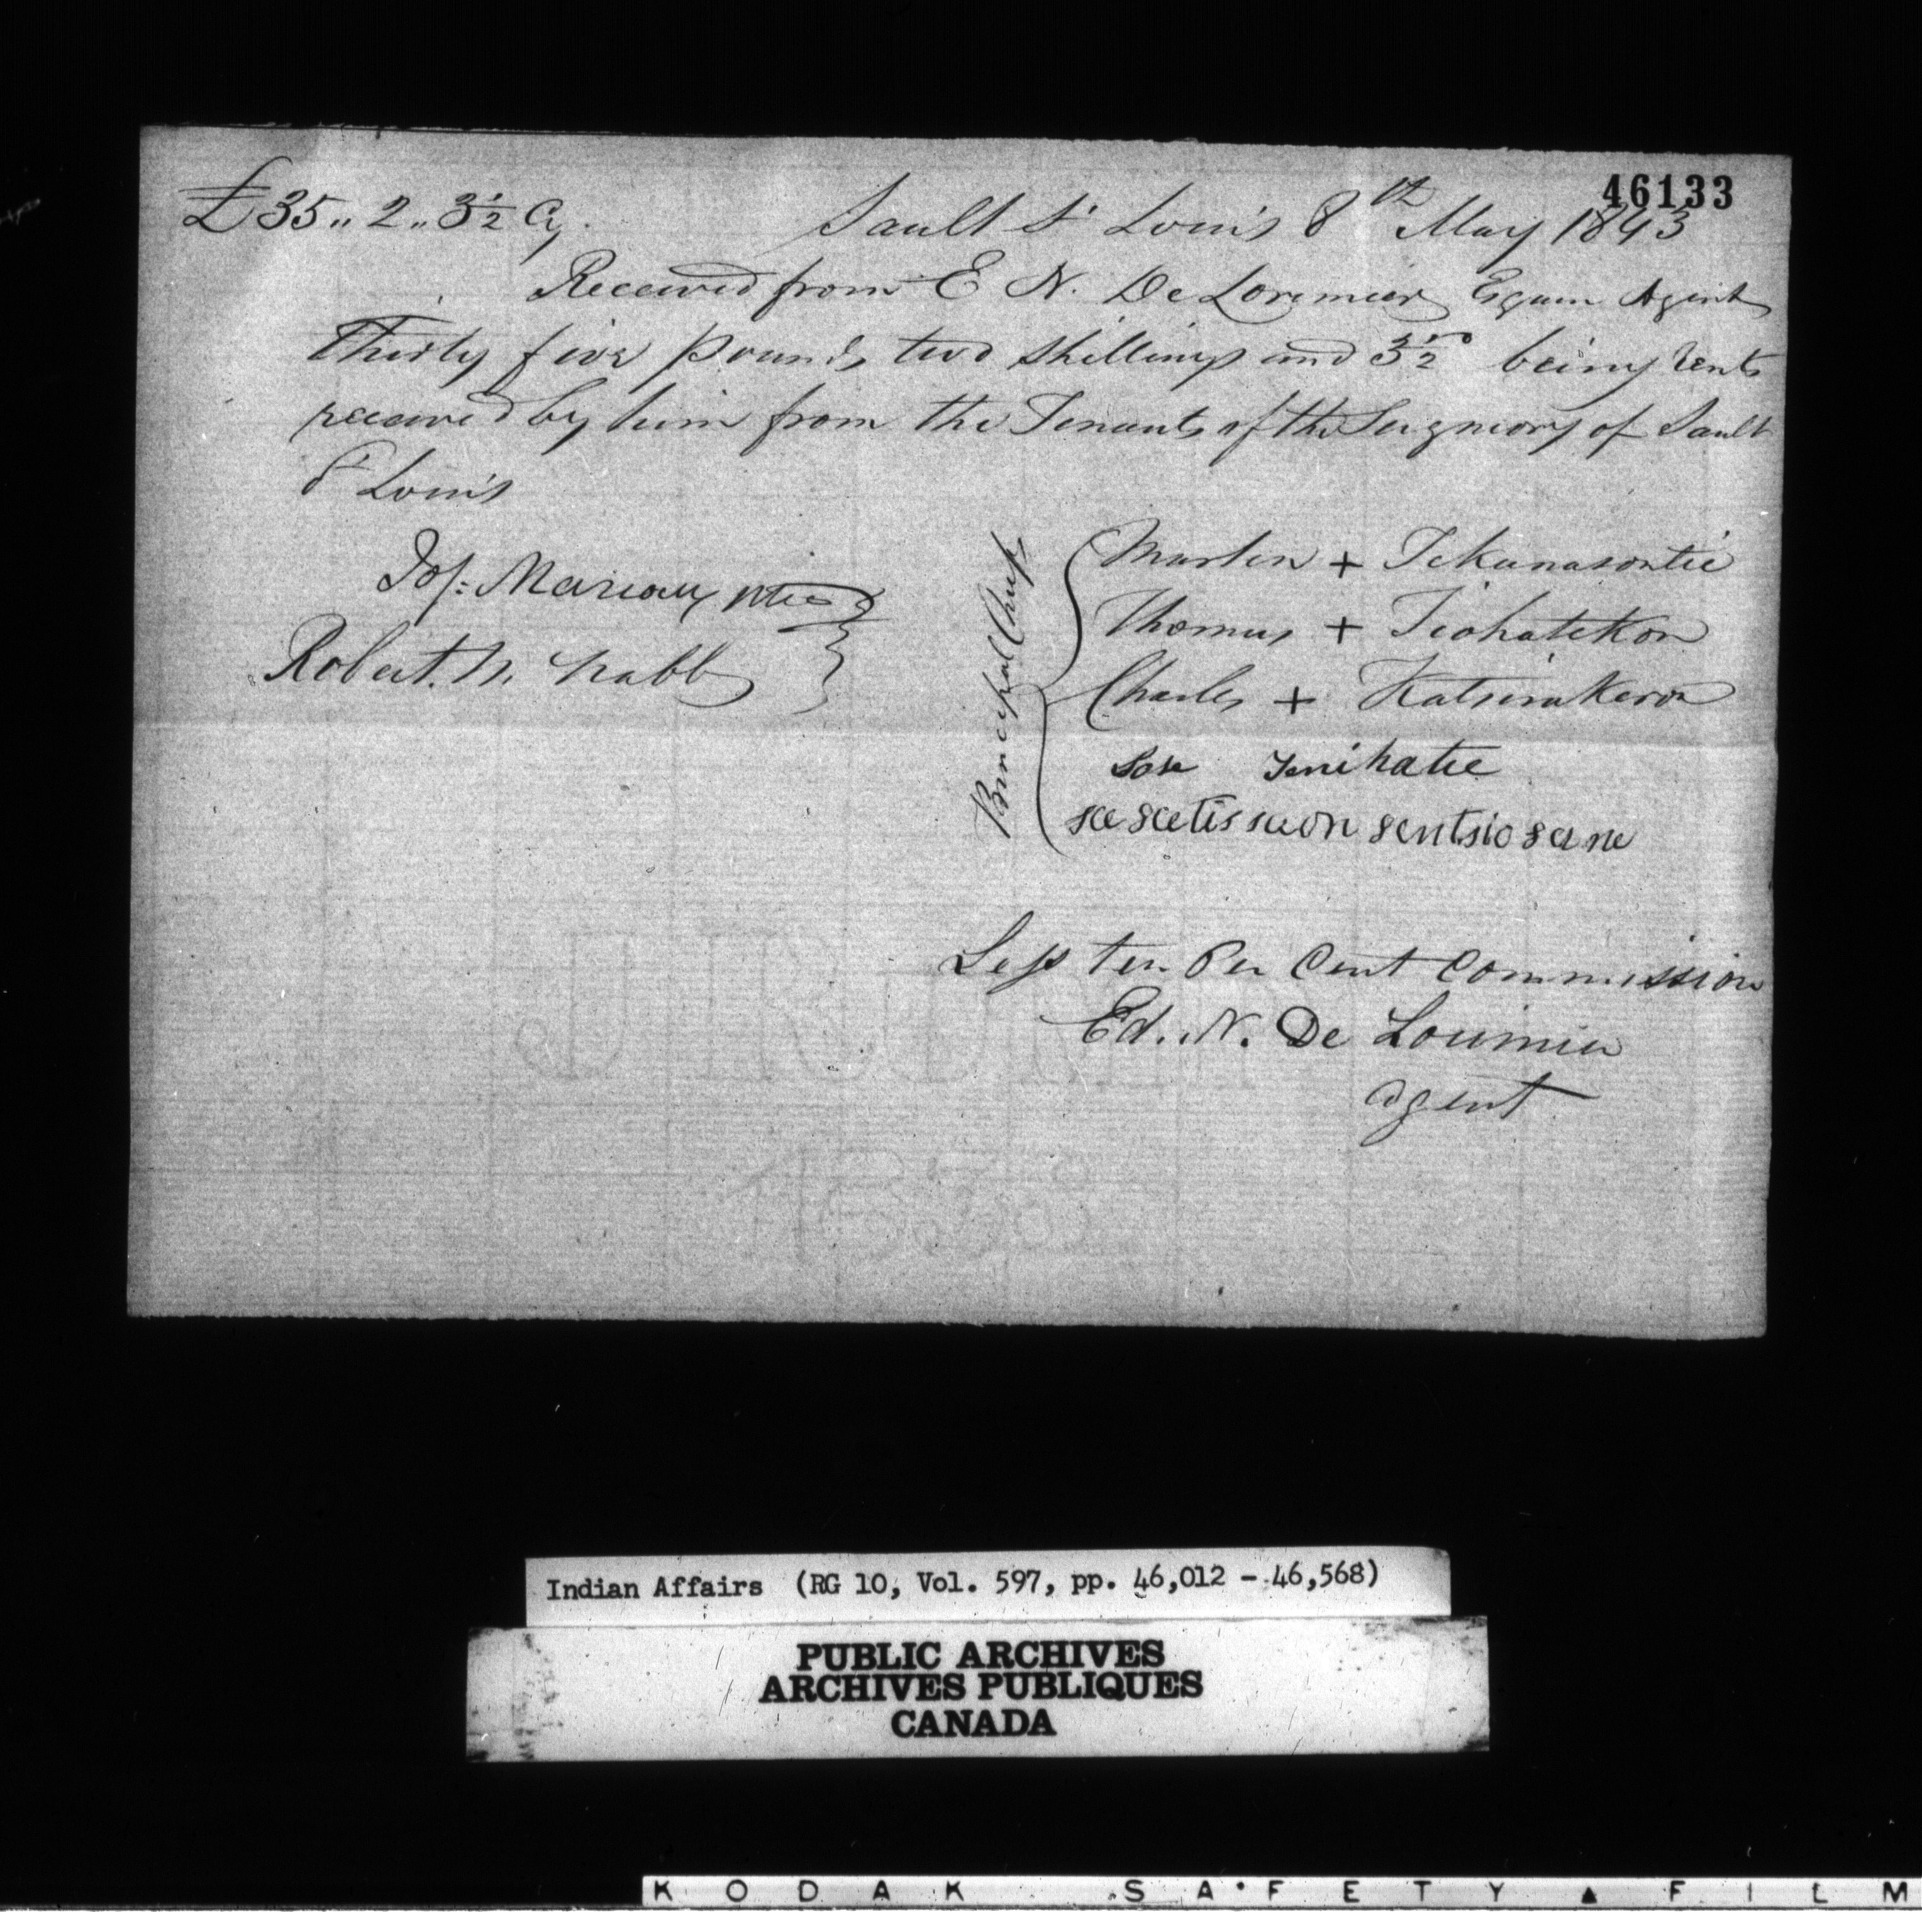 46133
£35 „ 2 „ 3½ Cy. Sault St Louis 8th May 1843
Received from E N. De Lorimier Esquire Agent
Thirty five pounds two shillings and 3½ being rents
received by him from the Tenants of the Seigneory of Sault
St Louis
Jos: Marcoux ptre
Robert. M. Nabb
Principal Chiefs
Marten + Tekanasontie
Thomas + Tiohatekon
Charles + Katsirakeron
Sose Tenihatie
Less ten Per Cent Commission
Ed. N. De Lorimier
agent
Indian Affairs (RG 10, Vol. 597, pp. 46,012 - 46,568)
PUBLIC ARCHIVES
ARCHIVES PUBLIQUES
CANADA
KODAK SAFETY FILM